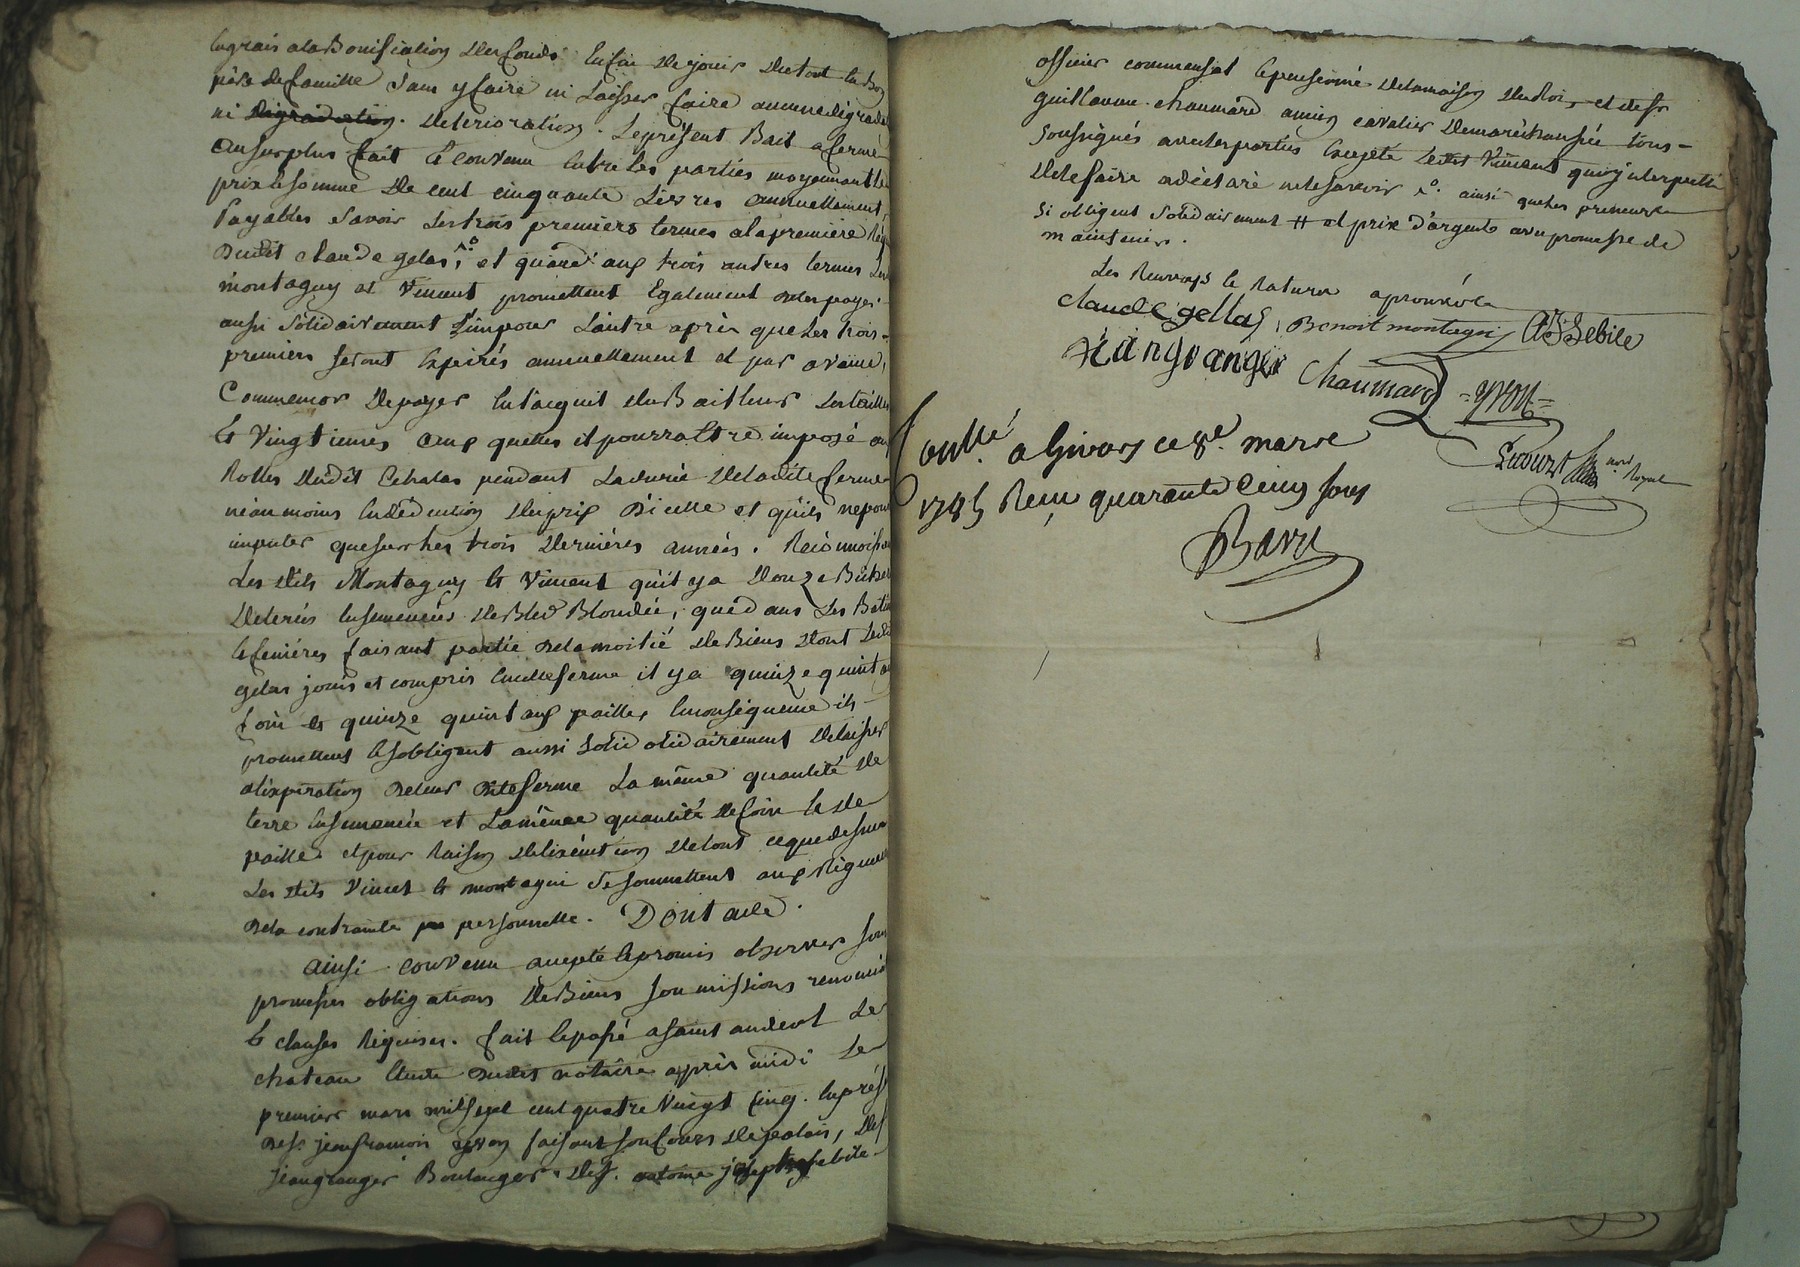 Engrais a la Bonification Des fonds Enfin De jouir Du tout En Bon
père De famille Sans y faire ni Laisser faire aucune dégrada
ni Dégradation. Deterioration. Le présent Bail a ferme
au surplus fait & convenu Entre Les parties moyennant Le
prix & somme De cent cinquante Livres annuellement,
Payables Savoir Les trois premiers termes a la premiere Req
Dudit claude gelas, et quand aux trois autres termes Les
montagny et Vincent promettent Egalement De les payer
aussi Solidairement L'un pour L'autre après que Les trois
premiers seront Expirés annuellement et par avance,
Commencer De payer En l'acquit Du Bailleur Les tailles
& Vingtiemes aux quelles il pourra Etre imposé au
Rolles Dudit Echalas pendant La durée De ladite ferme
néanmoins En déduction Du prix D'icelle et qu'ils ne pour
imputer que sur Les trois Dernières années. Reconnoissa
Les dits Montagny & Vincent qu'il y a Douze Bich
De terres Ensemencées De Bled Blondée, que dans Les Bati
& fenières faisant partie De la moitié De Biens Dont Led
gelas jouis et compris En cette ferme il y a quinze quint
foin & quinze quintaux paille, En conséquence ils
promettent & s'obligent aussi Solid olidairement De laisser
a l'expiration De leur Dite ferme La même quantité De
terre Ensemencée et La même quantité De foin & De
paille et pour Raison De l'exécution De tout ce que dessus
Les dits Vincent & montagni Se soumettent aux Rigueu
De la contrainte par personnelle. Dont acte.
ainsi convenu accepté & promis observer sous
promesses obligations De Biens soumissions renonci
& clauses Requises. fait & passé a saint andeol Le
chateau Etude Dudit notaire après midi Le
premier mars mil sept cent quatre Vingt Cinq. En prés
De sr. jean francois yvon faisant son Cours De palais, De s
Jean granger Boulanger, De sr. antoine joseph Sebile
officier commensal & pensionné De la maison Du Roi, et de sr
guillaume chaumard ancien cavalier De maréchaussée tous
soussignés avec les parties Excepté Ledit Vincent qui interpellé
De le faire a déclaré ne le savoir. ainsi que les preneurs
Si obligent Solidairement # et prix d'argent avec promesse de
maintenir.
Les Renvoys & Ratures aprouvés
claude gellas, Benoit montagny AJ Sebile
Jean granger Chaumard = yvon =
Contllé a Givors ce 8e. mars
1785 Reçu quarante Cinq sous
not Royal